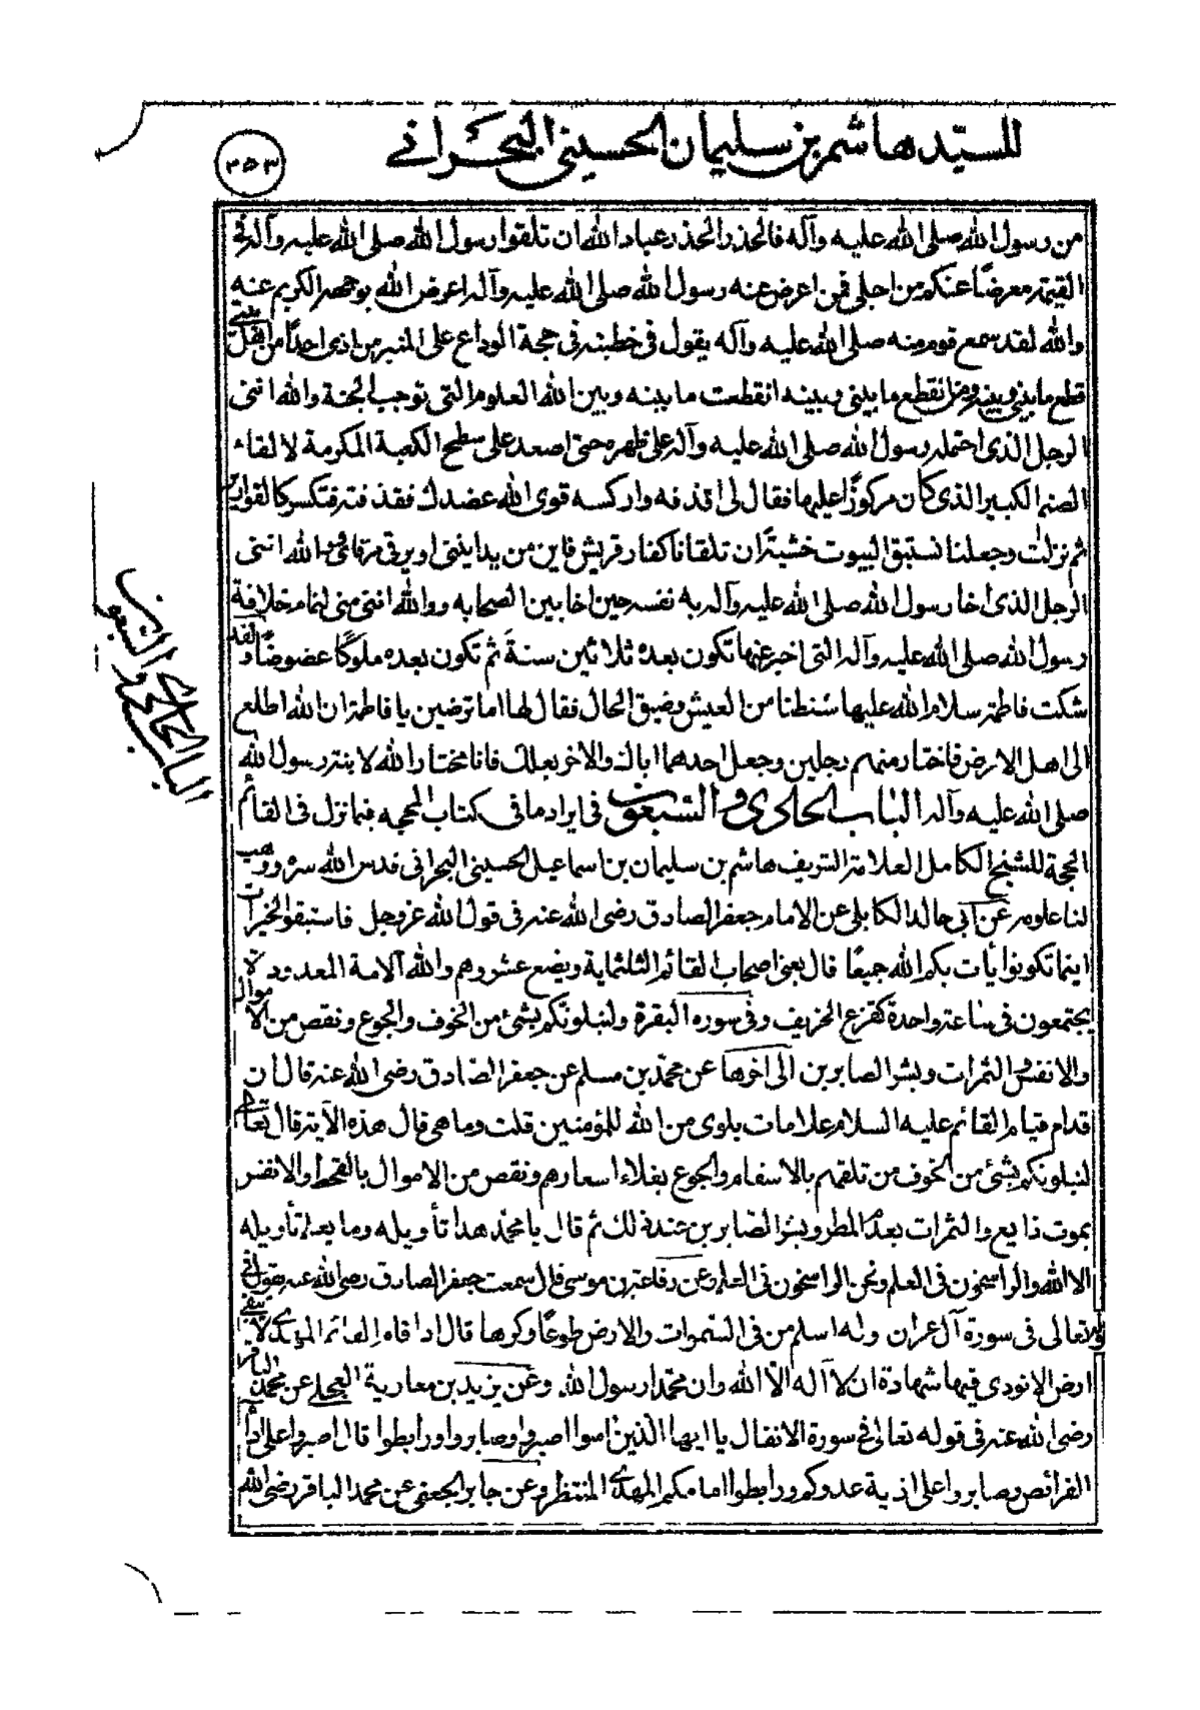 للسيّد هاشم بن سليمان الحسيني البحراني
٣٥٣
من رسول الله صلى الله عليه وآله فالحذر الحذر عباد الله ان تلقوا رسول الله صلى الله عليه وآله في
القيمة معرضًا عنكم من اجلي فمن اعرض عنه رسول الله صلى الله عليه وآله اعرض الله بوجهه الكريم عنه
والله لقد سمع قوم منه صلى الله عليه وآله يقول في خطبته في حجة الوداع على المنبر من اذى احدًا من اهل بيتي
قطع ما بيني وبينه ومن انقطع ما بيني وبينه انقطعت ما بينه وبين الله العلوم التي توجب الجنة والله انني
الرجل الذي احتمله رسول الله صلى الله عليه وآله على ظهره حتى اصعد على سطح الكعبة المكرمة لالقاء
الصنم الكبير الذي كان مركوزًا عليها فقال لي اقذفه واركسه قوى الله عضدك فقذفته فتكسر كالقوارير
ثم نزلت وجعلنا نستبق البيوت خشية ان تلقانا كفار قريش فاين من يدانيني او يرقى مرقاي والله انني
الرجل الذي اخا رسول الله صلى الله عليه وآله به نفسه حين اخا بين الصحابه ووالله انني مني لتمام خلافة
رسول الله صلى الله عليه وآله التي اخبر عنها تكون بعده ثلاثين سنة ثم تكون بعده ملوكًا عضوضًا ولقد
شكت فاطمة سلام الله عليها شنطنا من العيش وضيق الحال فقال لها اما ترضين يا فاطمة ان الله اطلع
الى اهل الارض فاختار منهم رجلين وجعل احدهما اباك والاخر بعلك فانا مختار الله لابنة رسول الله
صلى الله عليه وآله الباب الحادي والسبعون في ايراد ما في كتاب المحجه فيما نزل في القائم
الحجة للشيخ الكامل العلامة الشريف هاشم بن سليمان بن اسماعيل الحسيني البحراني قدس الله سره ووهب
لنا علومه عن ابي خالد الكابلي عن الامام جعفر الصادق رضي الله عنه في قول الله عز وجل فاستبقوا الخيرات
اينما تكونوا يأت بكم الله جميعًا قال يعني اصحاب القائم الثلثماية وبضع عشر وهم والله الامة المعدودة
يجتمعون في ساعة واحدة كقزع الخريف وفي سوره البقرة ولنبلونكم بشئ من الخوف والجوع ونقص من الاموال
والانفس والثمرات وبشر الصابرين الى اخرها عن محمد بن مسلم عن جعفر الصادق رضي الله عنه قال ان
قدام قيام القائم عليه السلام علامات بلوى من الله للمؤمنين قلت وما هي قال هذه الآية قال تعالى
لنبلونكم بشئ من الخوف من تلقهم بالاسقام والجوع بغلاء اسعارهم ونقص من الاموال بالقحط والانفس
بموت ذايع والثمرات بعدم المطر وبشر الصابرين عند ذلك ثم قال يا محمد هذا تأويله وما يعلم تأويله
الا الله والراسخون في العلم ونحن الراسخون في العلم وعن رفاعة بن موسى قال سمعت جعفر الصادق رضي الله عنه يقول في
قوله تعالى في سورة آل عمران وله اسلم من في السموات والارض طوعًا وكرها قال اذا قام القائم المهدي لا يبقى
ارض الا نودي فيها شهادة ان لا آله الّا الله وان محمّدا رسول الله وعن يزيد بن معاوية العجلي عن محمد الباقر
رضي الله عنه في قوله تعالى في سورة الانفال يا ايها الذين امنوا اصبروا وصابروا ورابطوا قال اصبروا على اداء
الفرائض وصابروا على اذية عدوكم ورابطوا امامكم المهدي المنتظر وعن جابر الجعفي عن محمد الباقر رضي الله
الباب الحادي والسبعون